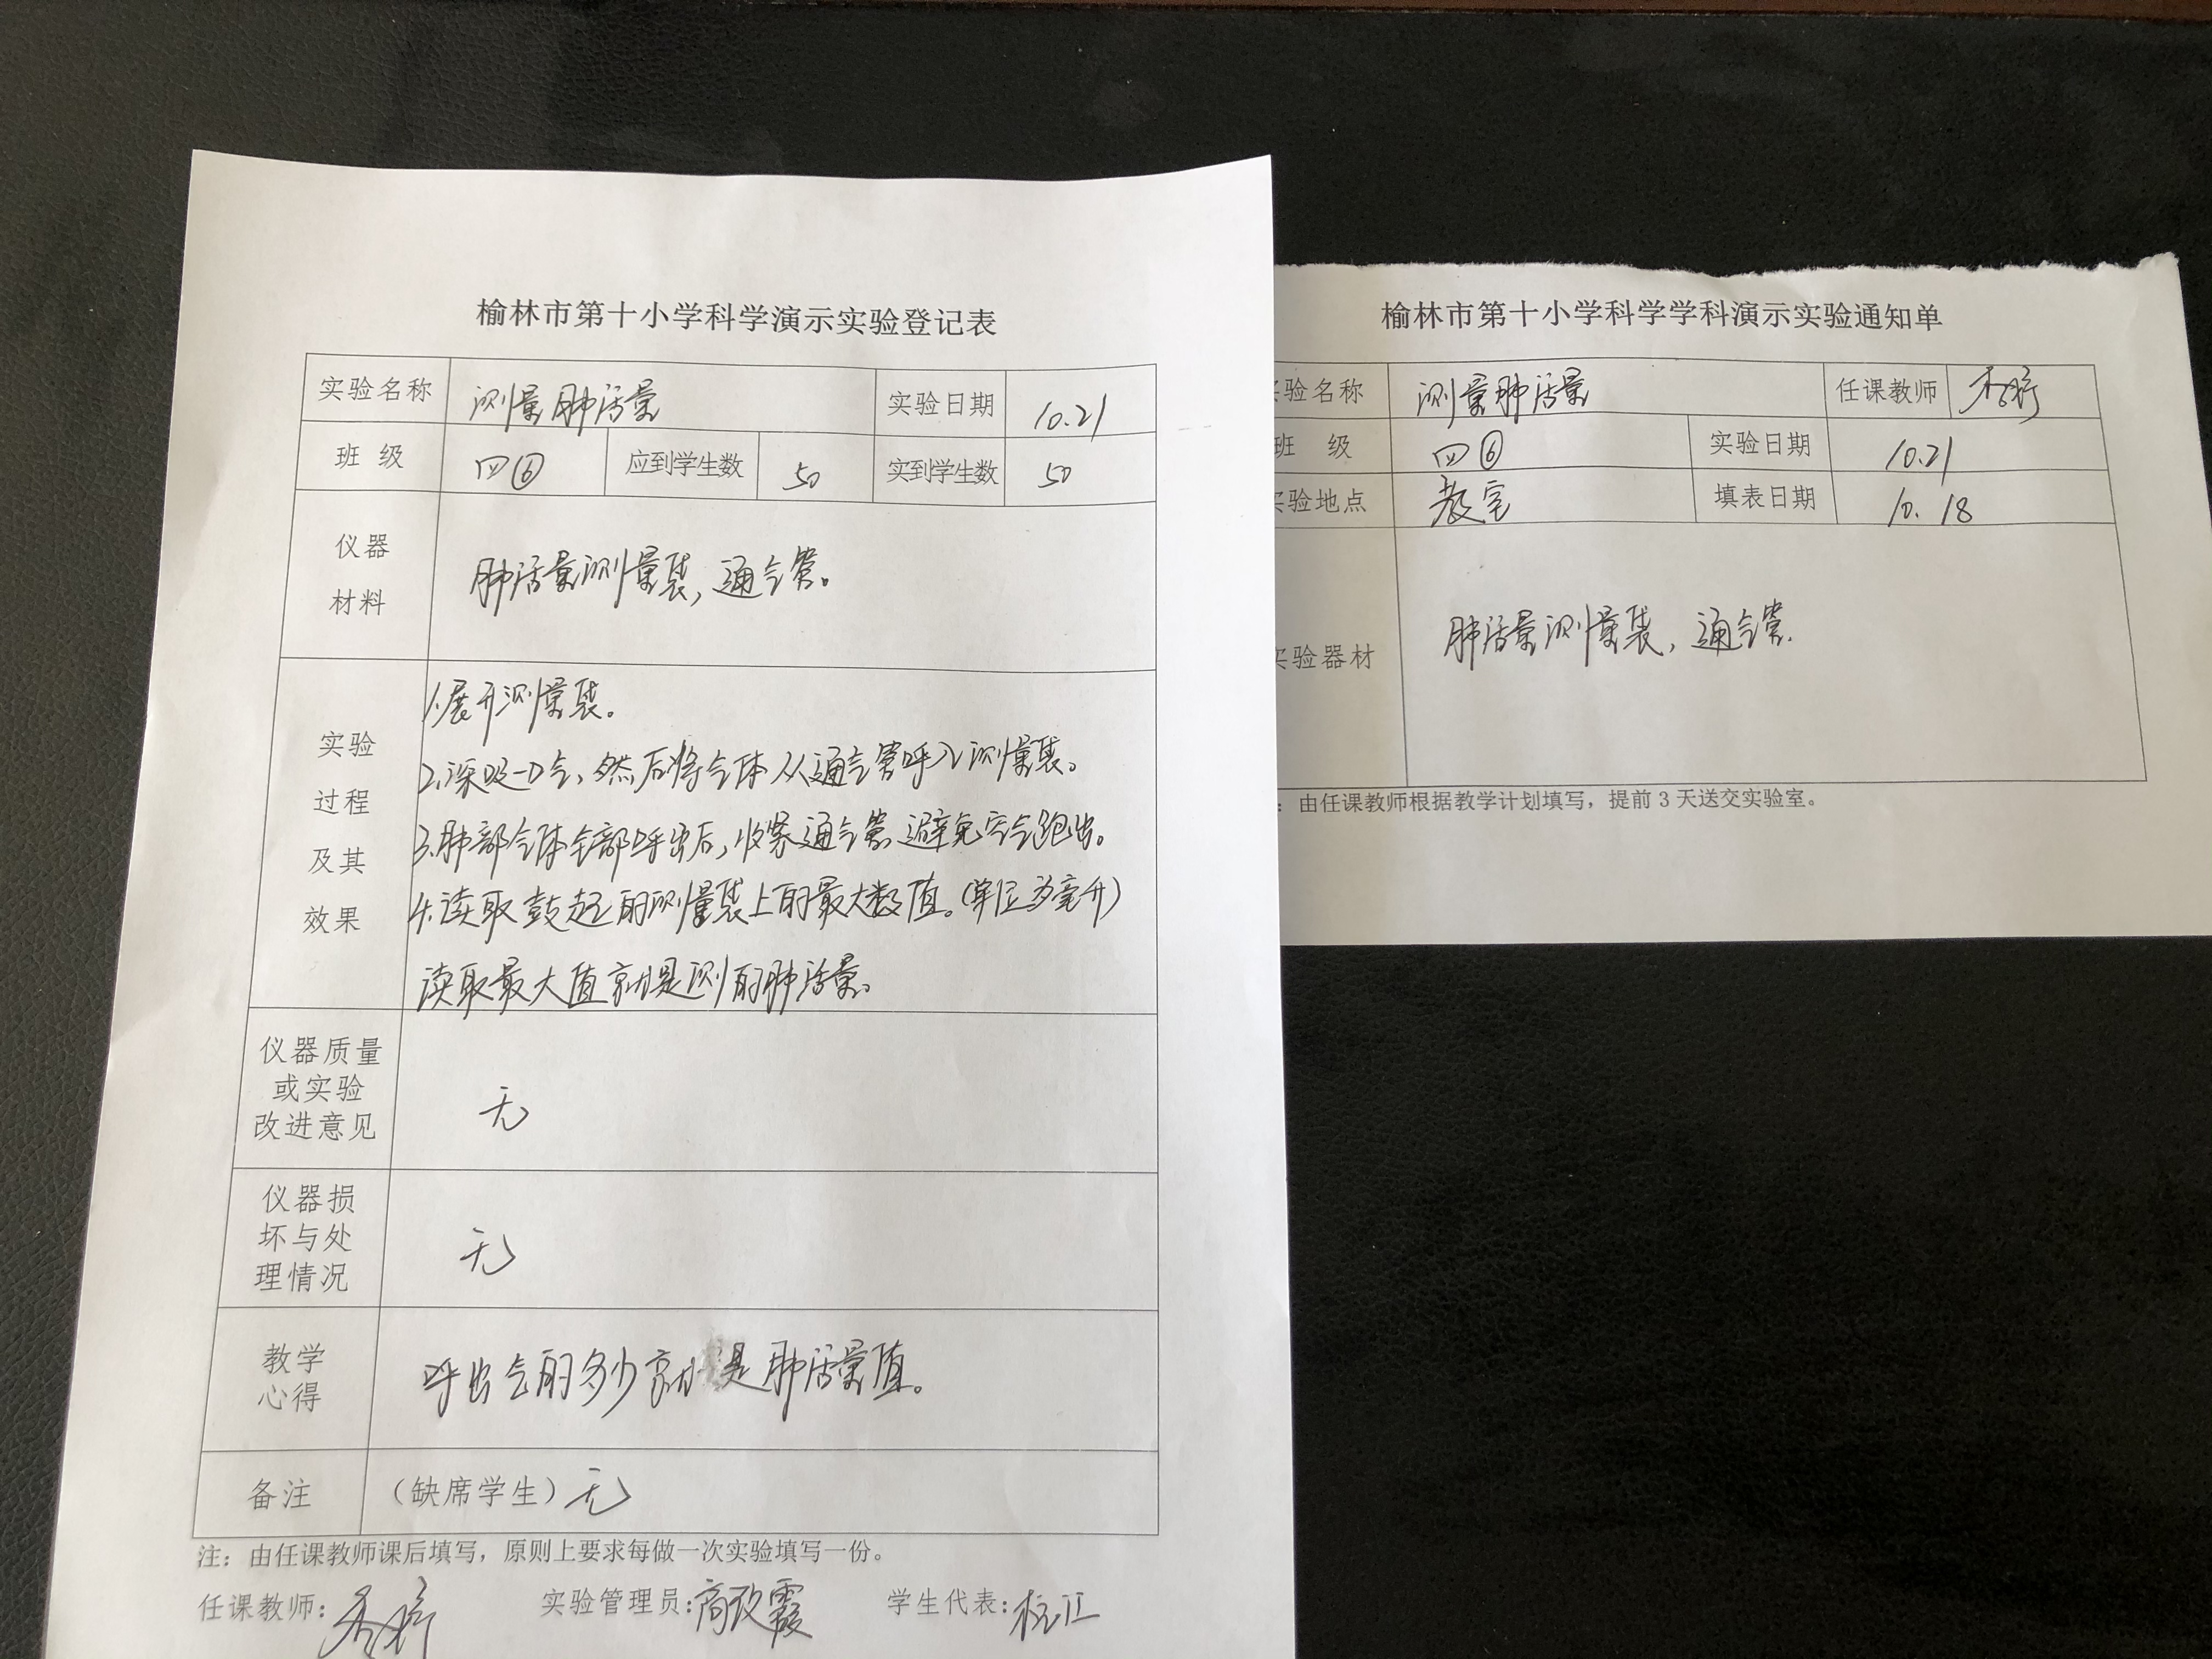 榆林市第十小学科学演示实验登记表
实验名称 测量肺活量 实验日期 10.21
班 级 四⑥ 应到学生数 50 实到学生数 50
仪器
材料
肺活量测量袋，通气管。
实验
过程
及其
效果
1.展开测量袋。
2.深吸一口气，然后将气体从通气管呼入测量袋。
3.肺部气体全部呼出后，收紧通气管，避免空气跑出。
4.读取鼓起的测量袋上的最大数值。(单位为毫升)
读取最大值就是测的肺活量。
仪器质量
或实验
改进意见
无
仪器损
坏与处
理情况
无
教学
心得
呼出气的多少就是肺活量值。
备注 （缺席学生）无
注：由任课教师课后填写，原则上要求每做一次实验填写一份。
任课教师： 实验管理员：高改霞 学生代表：
榆林市第十小学科学学科演示实验通知单
验名称 测量肺活量 任课教师
班 级 四⑥ 实验日期 10.21
实验地点 教室 填表日期 10.18
实验器材 肺活量测量袋，通气管.
：由任课教师根据教学计划填写，提前 3 天送交实验室。